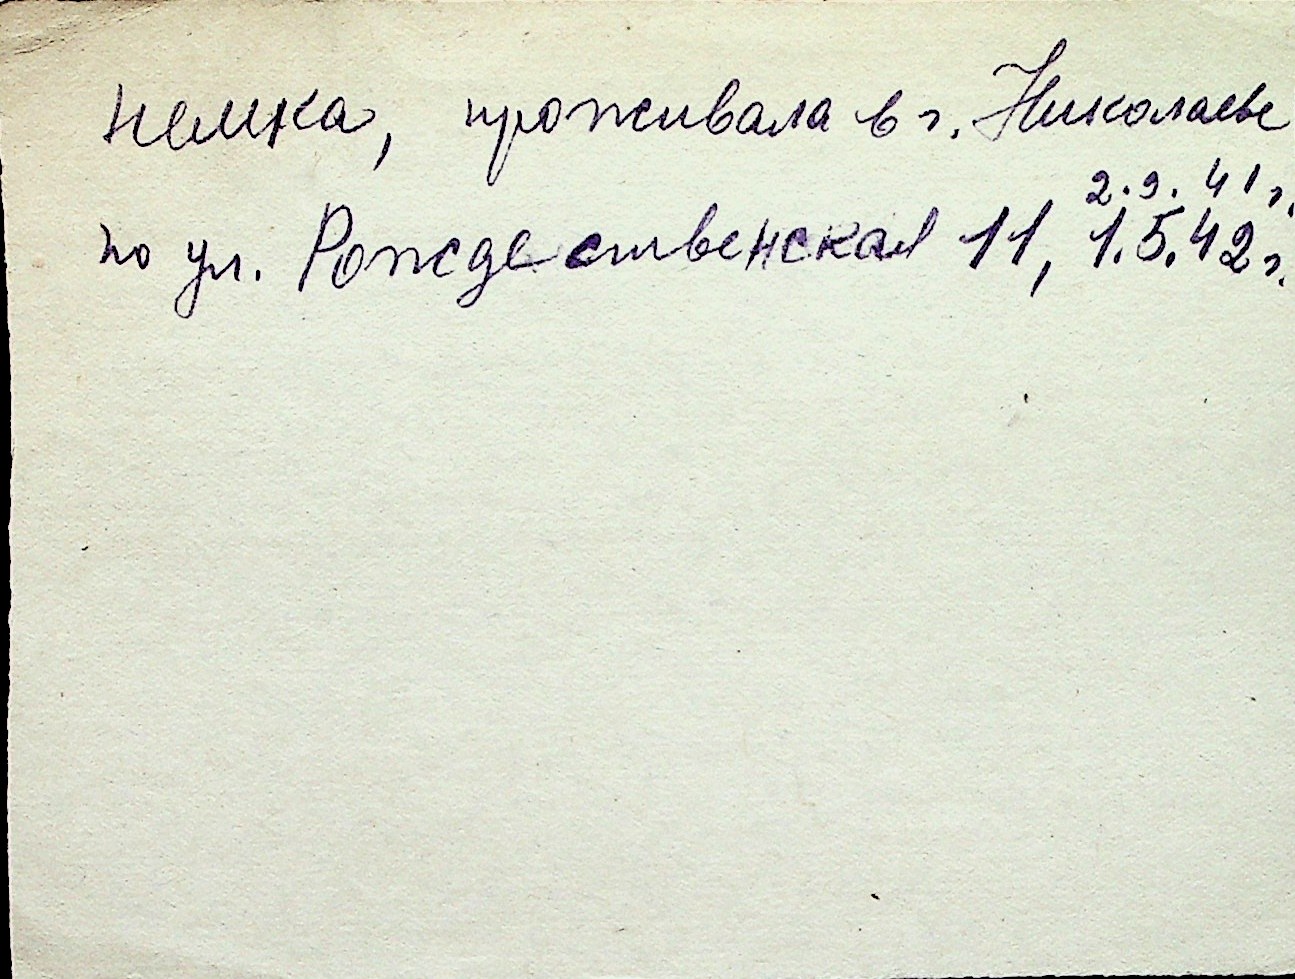 немка, проживала в г. Николаеве
2.9.41г.
по ул. Рождественская 11, 1.5.42г.